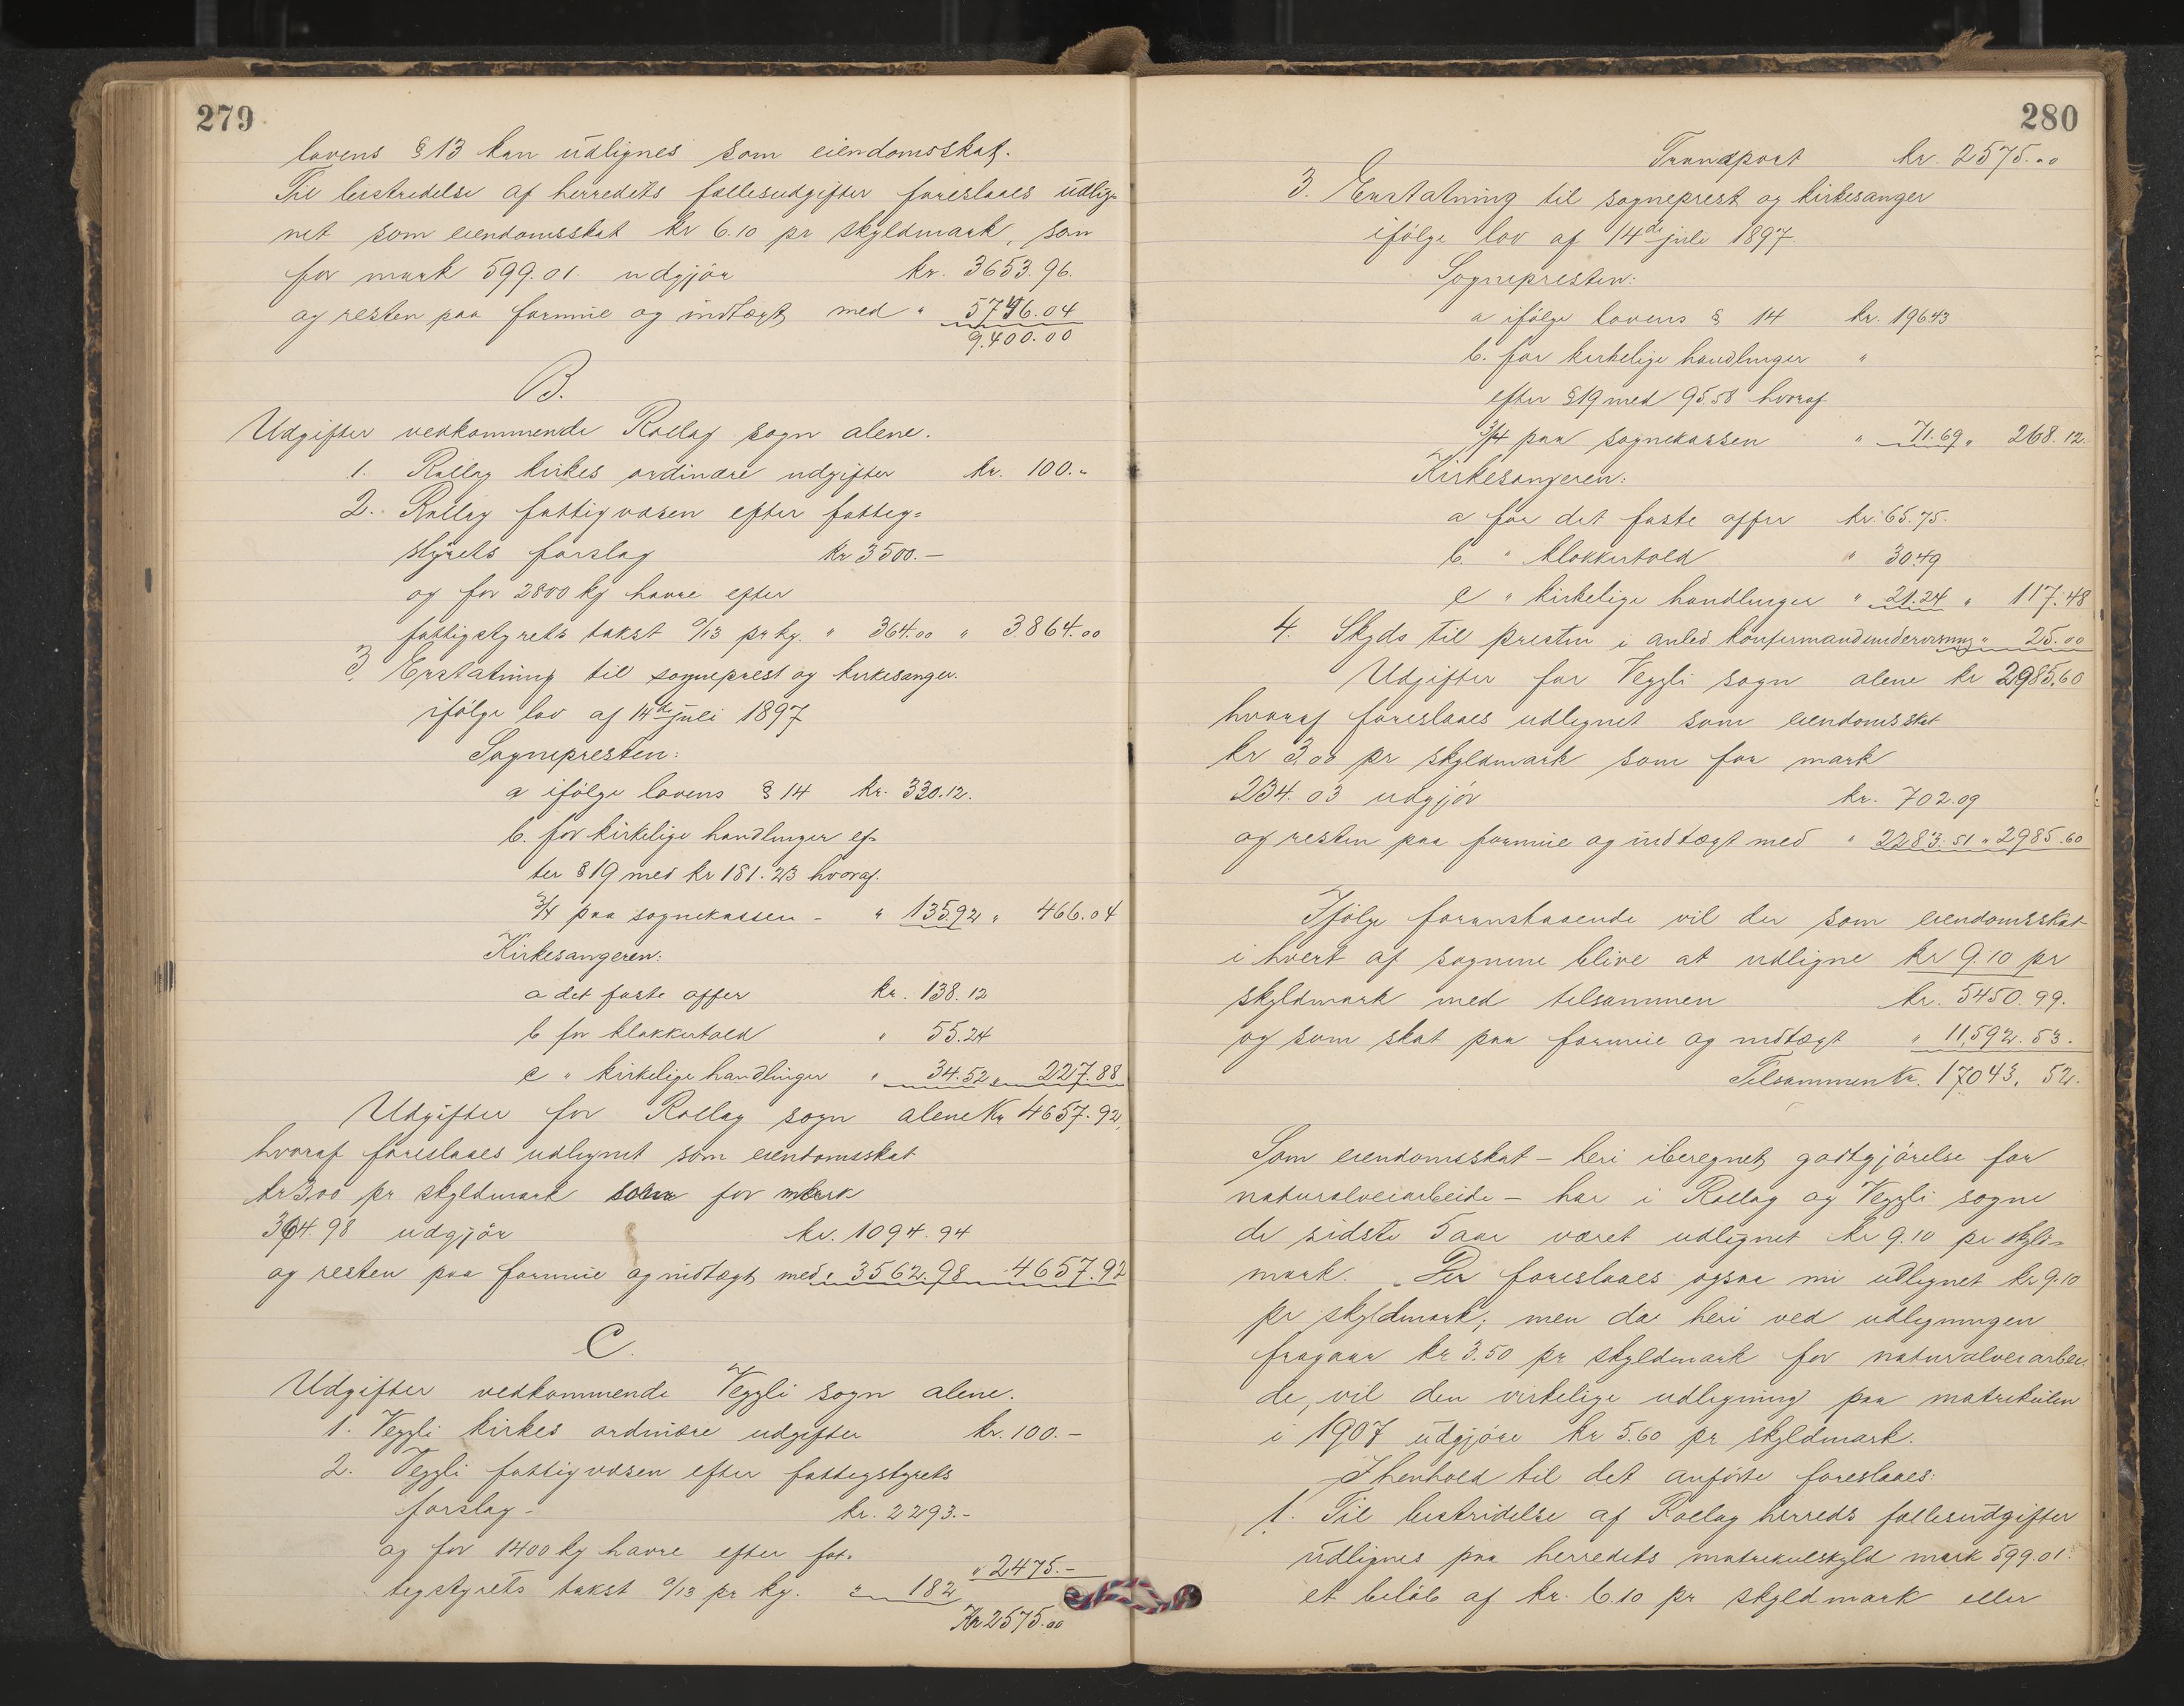 279
lovens § 13 kan udlignes som eiendomsskat.
Til bestridelse af herredets fællesudgifter foreslaaes udlig-
net som eiendomsskat kr 6.10 pr skyldmark, som
for mark 599.01. udgjør kr. 3653.96.
og resten paa formue og indtægt med " 5746.04
9.400.00
B.
Udgifter vedkommende Rollag sogn alene.
1. Rollag kirkes ordinære udgifter kr. 100.-
2. Rollag fattigvæsen efter fattig=
styrets forslag kr 3500.—
og for 2800 kg havre efter
fattigstyrets takst 0/13 pr kg. " 364.00 " 3.864.00
3. Erstatning til sogneprest og kirkesanger.
ifølge lov af 14de juli 1897
Sognepresten:
a ifølge lovens § 14 kr. 330.12.
b. for kirkelige handlinger ef-
ter § 19 med kr 181.23 hvoraf.
3/4 paa sognekassen - " 135.92 " 466.04
Kirkesangeren:
a det faste offer kr. 138.12
b for klokkertold " 55.24
c " kirkelige handlinger " 34.52 " 227.88
Udgifter for Rollag sogn alene Kr 4657.92,
hvoraf foreslaaes udlignet som eiendomsskat
kr 3.00 pr skyldmark som for mark
364.98 udgjør kr. 1094.94
og resten paa formue og indtægt med " 3562.98 4657.92
C.
Udgifter vedkommende Veggli sogn alene.
1. Veggli kirkes ordinære udgifter kr. 100.—
2. Veggli fattigvæsen efter fattigstyrets
forslag - kr. 2293.-
og for 1400 kg havre efter fat-
tigstyrets takst 0/13 pr kg. " 182 " 2475.—
Kr 2575.00
280
Transport kr. 2575.00
3. Erstatning til sogneprest og kirkesanger
ifølge lov af 14de juli 1897.
Sognepresten:
a ifølge lovens § 14 kr. 196.43
b. for kirkelige handlinger "
efter § 19 med 95.58 hvoraf
3/4 paa sognekassen " 71.69 " 268.12.
Kirkesangeren:
a for det faste offer kr. 65.75.
b. " klokkertold " 30.49
c " kirkelige handlinger " 21.24 " 117.48
4. Skyds til presten i anled. konfirmandundervisning " 25.00
Udgifter for Veggli sogn alene kr 2985.60
hvoraf foreslaaes udlignet som eiendomsskat
kr 3.00 pr skyldmark som for mark
234.03 udgjør kr. 702.09
og resten paa formue og indtægt med " 2283.51 " 2985.60
Ifølge foranstaaende vil der som eiendomsskat
i hvert af sognene blive at udligne kr 9.10 pr
skyldmark med tilsammen kr. 5450.99.
og som skat paa formue og indtægt " 11,592.53.
Tilsammen Kr. 17,043, 52.
Som eiendomsskat – heri iberegnet godtgjørelse for
naturalveiarbeide – har i Rollag og Veggli sogne
de sidste 5 aar været udlignet kr 9.10 pr skyld=
mark. Der foreslaaes ogsaa nu udlignet kr 9.10
pr skyldmark; men da heri ved udligningen
fragaar kr 3.50 pr skyldmark for naturalveiarbei-
de, vil den virkelige udligning paa matrikulen
i 1907 udgjøre kr 5.60 pr skyldmark.
I henhold til det anførte foreslaaes:
1. Til bestridelse af Rollag herreds fællesudgifter
udlignes paa herredets matrikulskyld mark 599.01.
et beløb af kr. 6.10 pr skyldmark eller